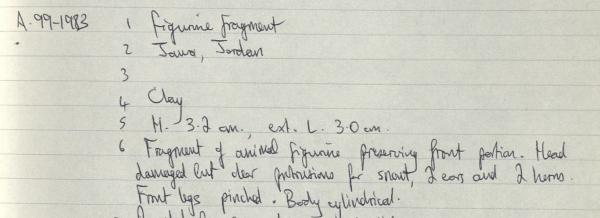 A.99-1983 1 Figurine fragment
2 Jawa, Jordan
3
4 Clay
5 H. 3.2 cm., ext. L. 3.0 cm.
6 Fragment of animal figurine preserving front portion. Head
damaged but clear protrusions for snout, 2 ears and 2 horns.
Front legs pinched. Body cylindrical.